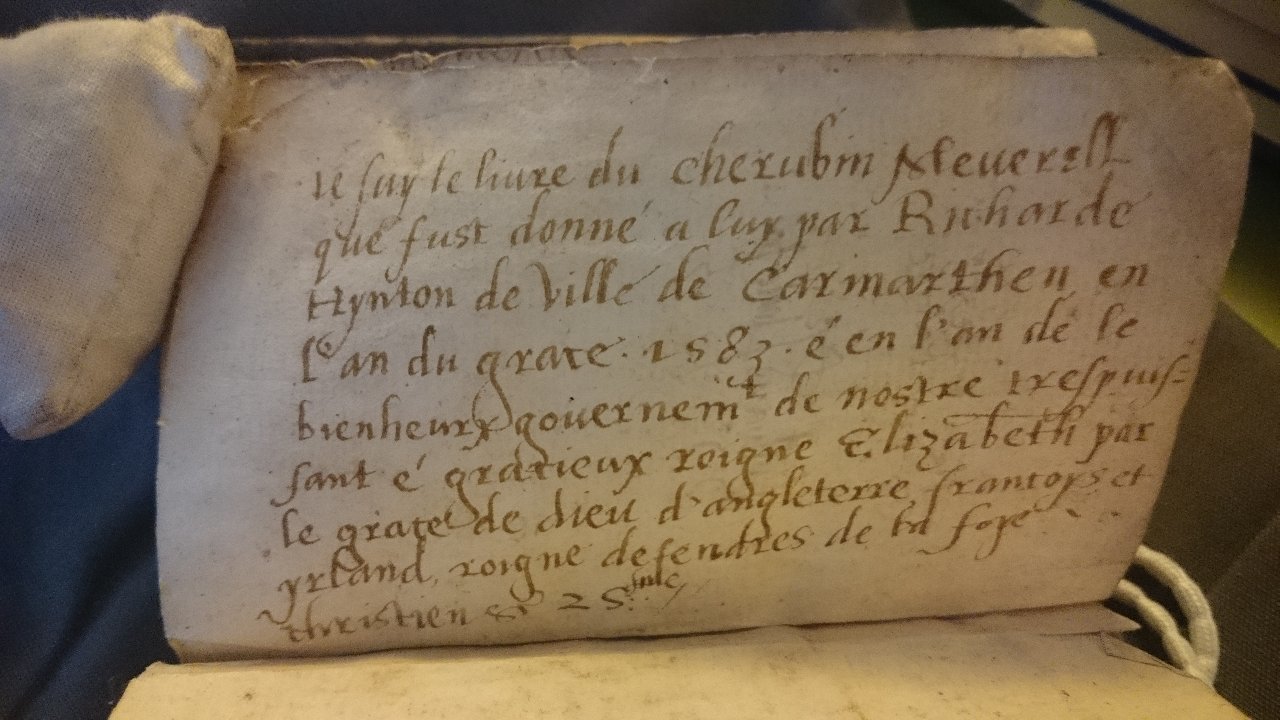 ie suy le liure du cherubin Neuerell
que fust donné a luy par Richarde
Hynton de ville de Carmarthen en
l'an du grace . 1583 . é en l'an de le
bienheurx gouernemt de nostre trespuis=
sant é gracieux roigne Elizabeth par
le grace de dieu d'angleterre francoys et
yrland, roigne defendres de la foye
christien &c 25